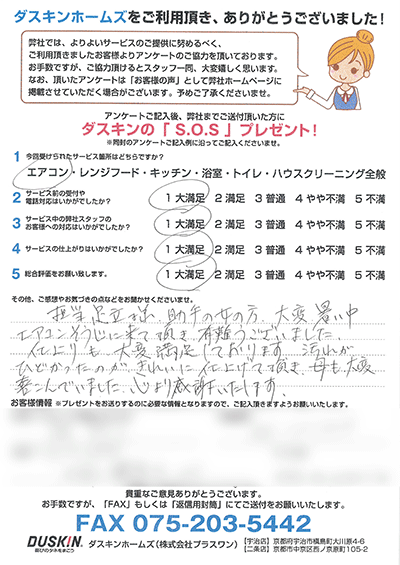 ダスキンホームズをご利用頂き、ありがとうございました!
弊社では、よりよいサービスのご提供に努めるべく、
ご利用頂きましたお客様よりアンケートのご協力を頂いております。
お手数ですが、ご協力頂けるとスタッフ一同、大変嬉しく思います。
なお、頂いたアンケートは「お客様の声」として弊社ホームページに
掲載させていただく場合がございます。予めご了承くださいませ。
アンケートご記入後、弊社までご送付頂いた方に
ダスキンの「S.O.S」プレゼント!
※同封のアンケートご記入例に沿ってご記入くださいませ。
1 今回受けられたサービス箇所はどちらですか?
エアコン・レンジフード・キッチン・浴室・トイレ・ハウスクリーニング全般
2 サービス前の受付や
電話対応はいかがでしたか? 1 大満足 2 満足 3 普通 4 やや不満 5 不満
3 サービス中の弊社スタッフの
お客様への対応はいかがでしたか? 1 大満足 2 満足 3 普通 4 やや不満 5 不満
4 サービスの仕上がりはいかがでしたか? 1 大満足 2 満足 3 普通 4 やや不満 5 不満
5 総合評価をお願い致します。 1 大満足 2 満足 3 普通 4 やや不満 5 不満
その他、ご感想やお気づきの点などをお聞かせくださいませ。
担当足立様、助手の女の方、大変暑い中
エアコンそうじに来て頂き、有難うございました。
仕上りも、大変満足しております。汚れが
ひどかったのが、きれいに仕上げて頂き、母も大変
喜こんでいました。心より感謝いたします。
お客様情報 ※プレゼントをお送りするのに必要な情報となりますので、ご記入頂きますようお願いいたします。
貴重なご意見ありがとうございます。
お手数ですが、「FAX」もしくは「返信用封筒」にてご送付をお願いいたします。
FAX 075-203-5442
DUSKIN
喜びのタネをまこう
ダスキンホームズ(株式会社プラスワン)
【宇治店】京都府宇治市槇島町大川原4-6
【二条店】京都市中京区西ノ京原町105-2